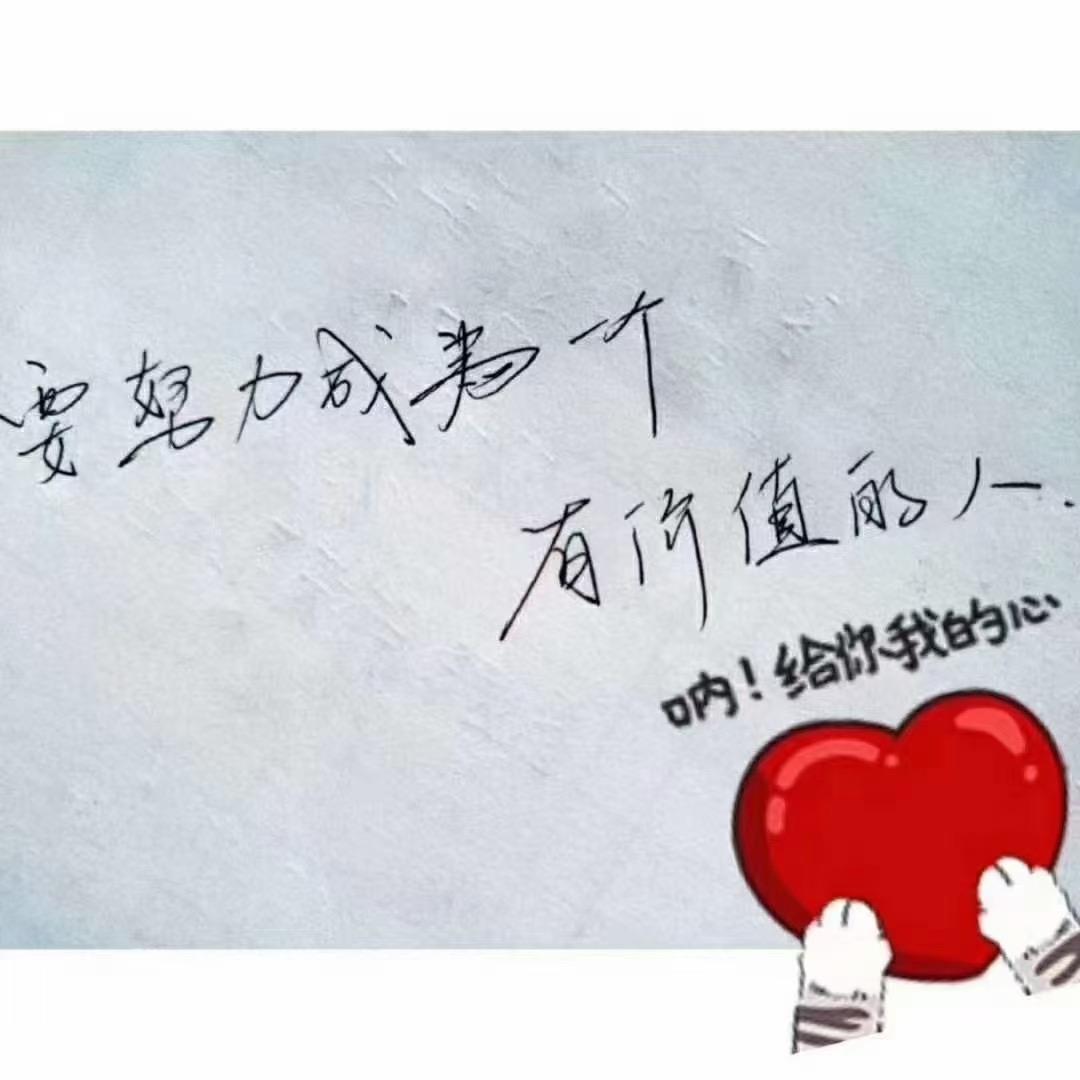 要努力成为一个
有价值的人.
呐!给你我的心